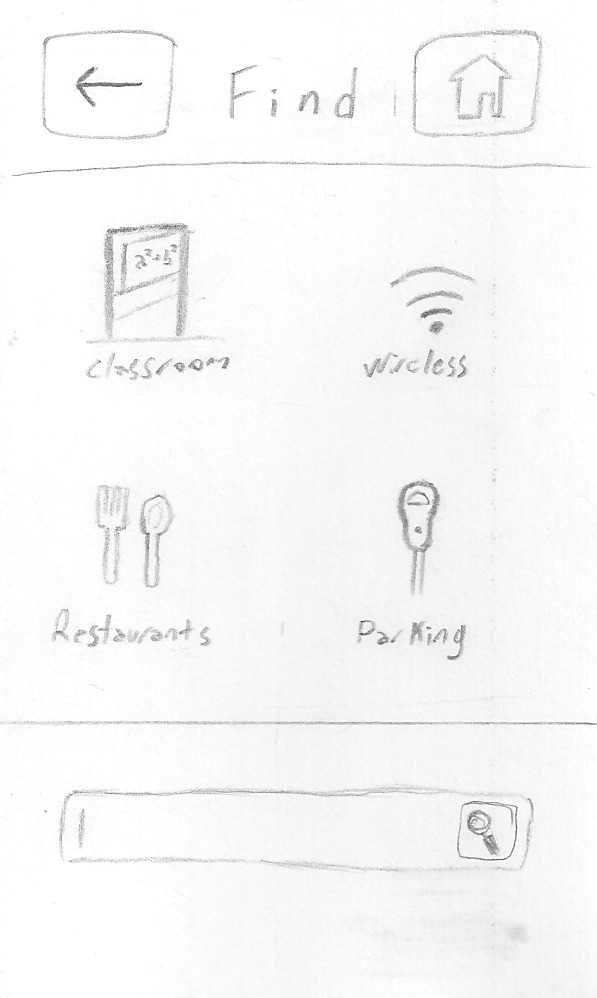 Find
a²+b²
Classroom
Wireless
Restaurants
Parking